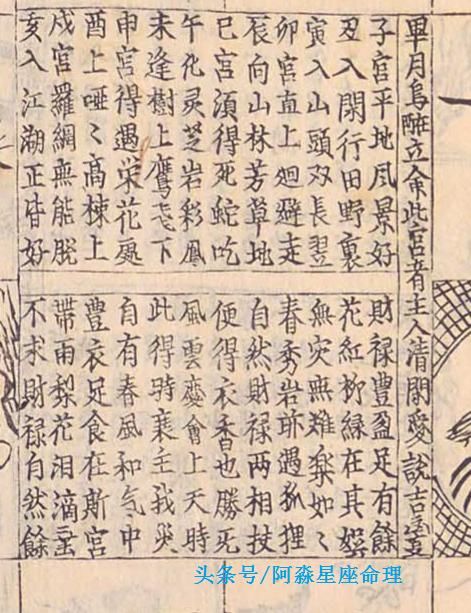 畢月烏躔立命此宮者主人清閑愛說吉
子宮平地風景好
財禄豊盈足有餘
丑入閑行田野裏
花紅柳緑在其
寅入山頭双長翌
無灾無难樂如々
卯宮直上廻避走
春秀岩跡遇狐狸
辰向山林芳草地
自然財禄两相技
巳宮湏得死蛇吃
便得衣香也勝死
午化灵芝岩彩鳳
風雲慶會上天時
未逢樹上鷹飛下
此得時衰主我哭
申宮得遇荣花處
自有春風和气中
酉上哑々高棟上
豊衣足食在斯宮
戌宮羅網無能脫
帶雨梨花泪滴
亥入江湖正皆好
不求財禄自然餘
头条号/阿淼星座命理